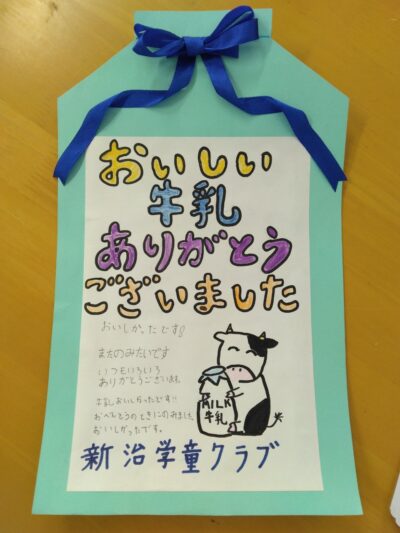 おいしい
牛乳
ありがとう
ございました
おいしかったです!
またのみたいです
いつもいろいろ
ありがとうございます。
牛乳おいしかったです!!
おべんとうのときにのみました
おいしかったです。
MILK
牛乳
新治学童クラブ